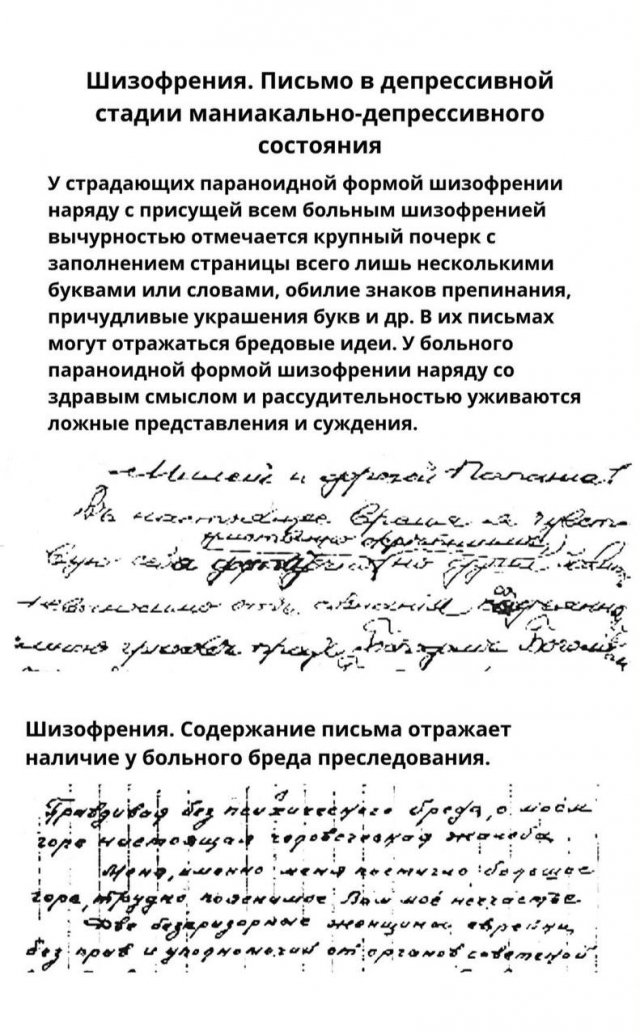 Шизофрения. Письмо в депрессивной
стадии маниакально-депрессивного
состояния
У страдающих параноидной формой шизофрении
наряду с присущей всем больным шизофренией
вычурностью отмечается крупный почерк с
заполнением страницы всего лишь несколькими
буквами или словами, обилие знаков препинания,
причудливые украшения букв и др. В их письмах
могут отражаться бредовые идеи. У больного
параноидной формой шизофрении наряду со
здравым смыслом и рассудительностью уживаются
ложные представления и суждения.
Милый и дорогой Папаша!
В настоящее время я чувст
вую себя
Шизофрения. Содержание письма отражает
наличие у больного бреда преследования.
Правдивая без психического бреда, о моём
горе настоящая человеческая жалоба.
Меня, именно меня постигло большое
горе, трудно Вам моё несчастье
Две безпризорные женщины еврейки,
без прав и уполномочий от органов советской